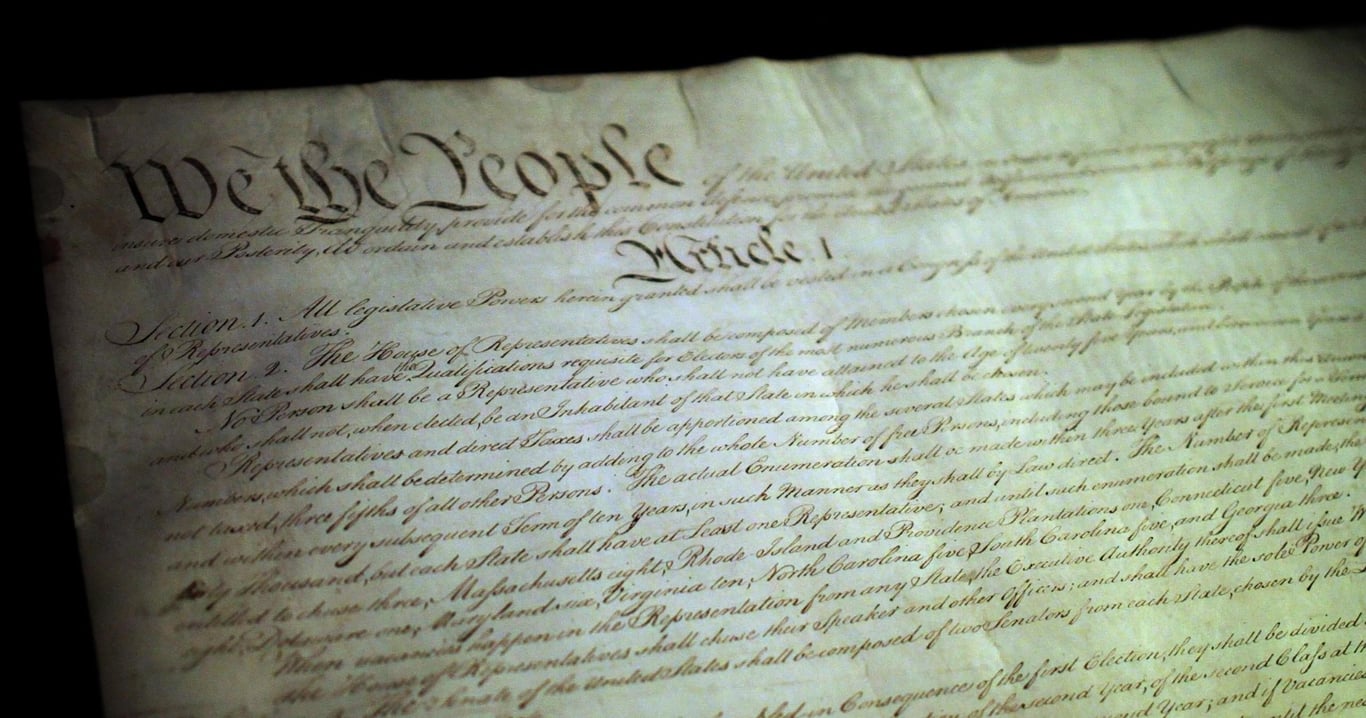 We the People of the United States
insure domestic Tranquility, provide for the common defence,
and our Posterity, do ordain and establish this Constitution for the United States of America.
Article. I.
Section. 1. All legislative Powers herein granted shall be vested in a Congress of the United States
of Representatives.
Section. 2. The House of Representatives shall be composed of Members chosen every second Year by the People of the
in each State shall have the Qualifications requisite for Electors of the most numerous Branch of the State Legislature.
No Person shall be a Representative who shall not have attained to the Age of twenty five Years,
and who shall not, when elected, be an Inhabitant of that State in which he shall be chosen.
Representatives and direct Taxes shall be apportioned among the several States which may be included within this
Numbers, which shall be determined by adding to the whole Number of free Persons, including those bound to Service for a
not taxed, three fifths of all other Persons. The actual Enumeration shall be made within three Years after the first
and within every subsequent Term of ten Years, in such Manner as they shall by Law direct. The Number of
thirty Thousand, but each State shall have at Least one Representative; and until such enumeration shall be made, the
entitled to chuse three, Massachusetts eight, Rhode Island and Providence Plantations one, Connecticut five, New
eight, Delaware one, Maryland six, Virginia ten, North Carolina five, South Carolina five, and Georgia three.
When vacancies happen in the Representation from any State, the Executive Authority thereof shall issue
The House of Representatives shall chuse their Speaker and other Officers; and shall have the sole Power of
The Senate of the United States shall be composed of two Senators from each State, chosen by the
in Consequence of the first Election, they shall be divided
of the second Year, of the second Class at the
Year; and if Vacancies
until the